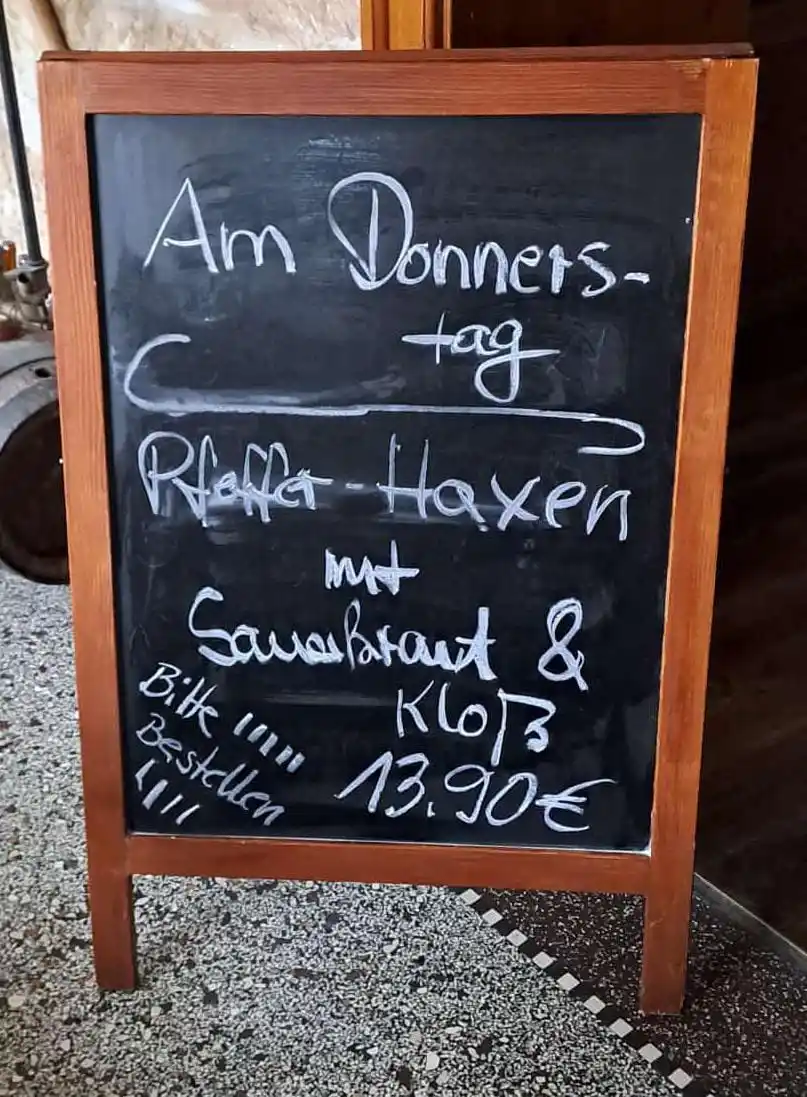 Am Donners-
tag
Pfeffer-Haxen
mit
Sauerkraut &
Kloß
Bitte
Bestellen
13.90€